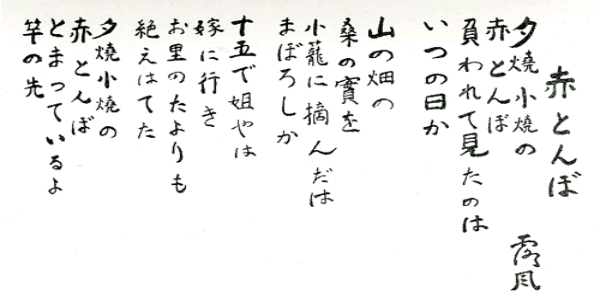 赤とんぼ
露風
夕燒小燒の
赤とんぼ
負われて見たのは
いつの日か
山の畑の
桑の實を
小籠に摘んだは
まぼろしか
十五で姐やは
嫁に行き
お里のたよりも
絶えはてた
夕燒小燒の
赤とんぼ
とまっているよ
竿の先